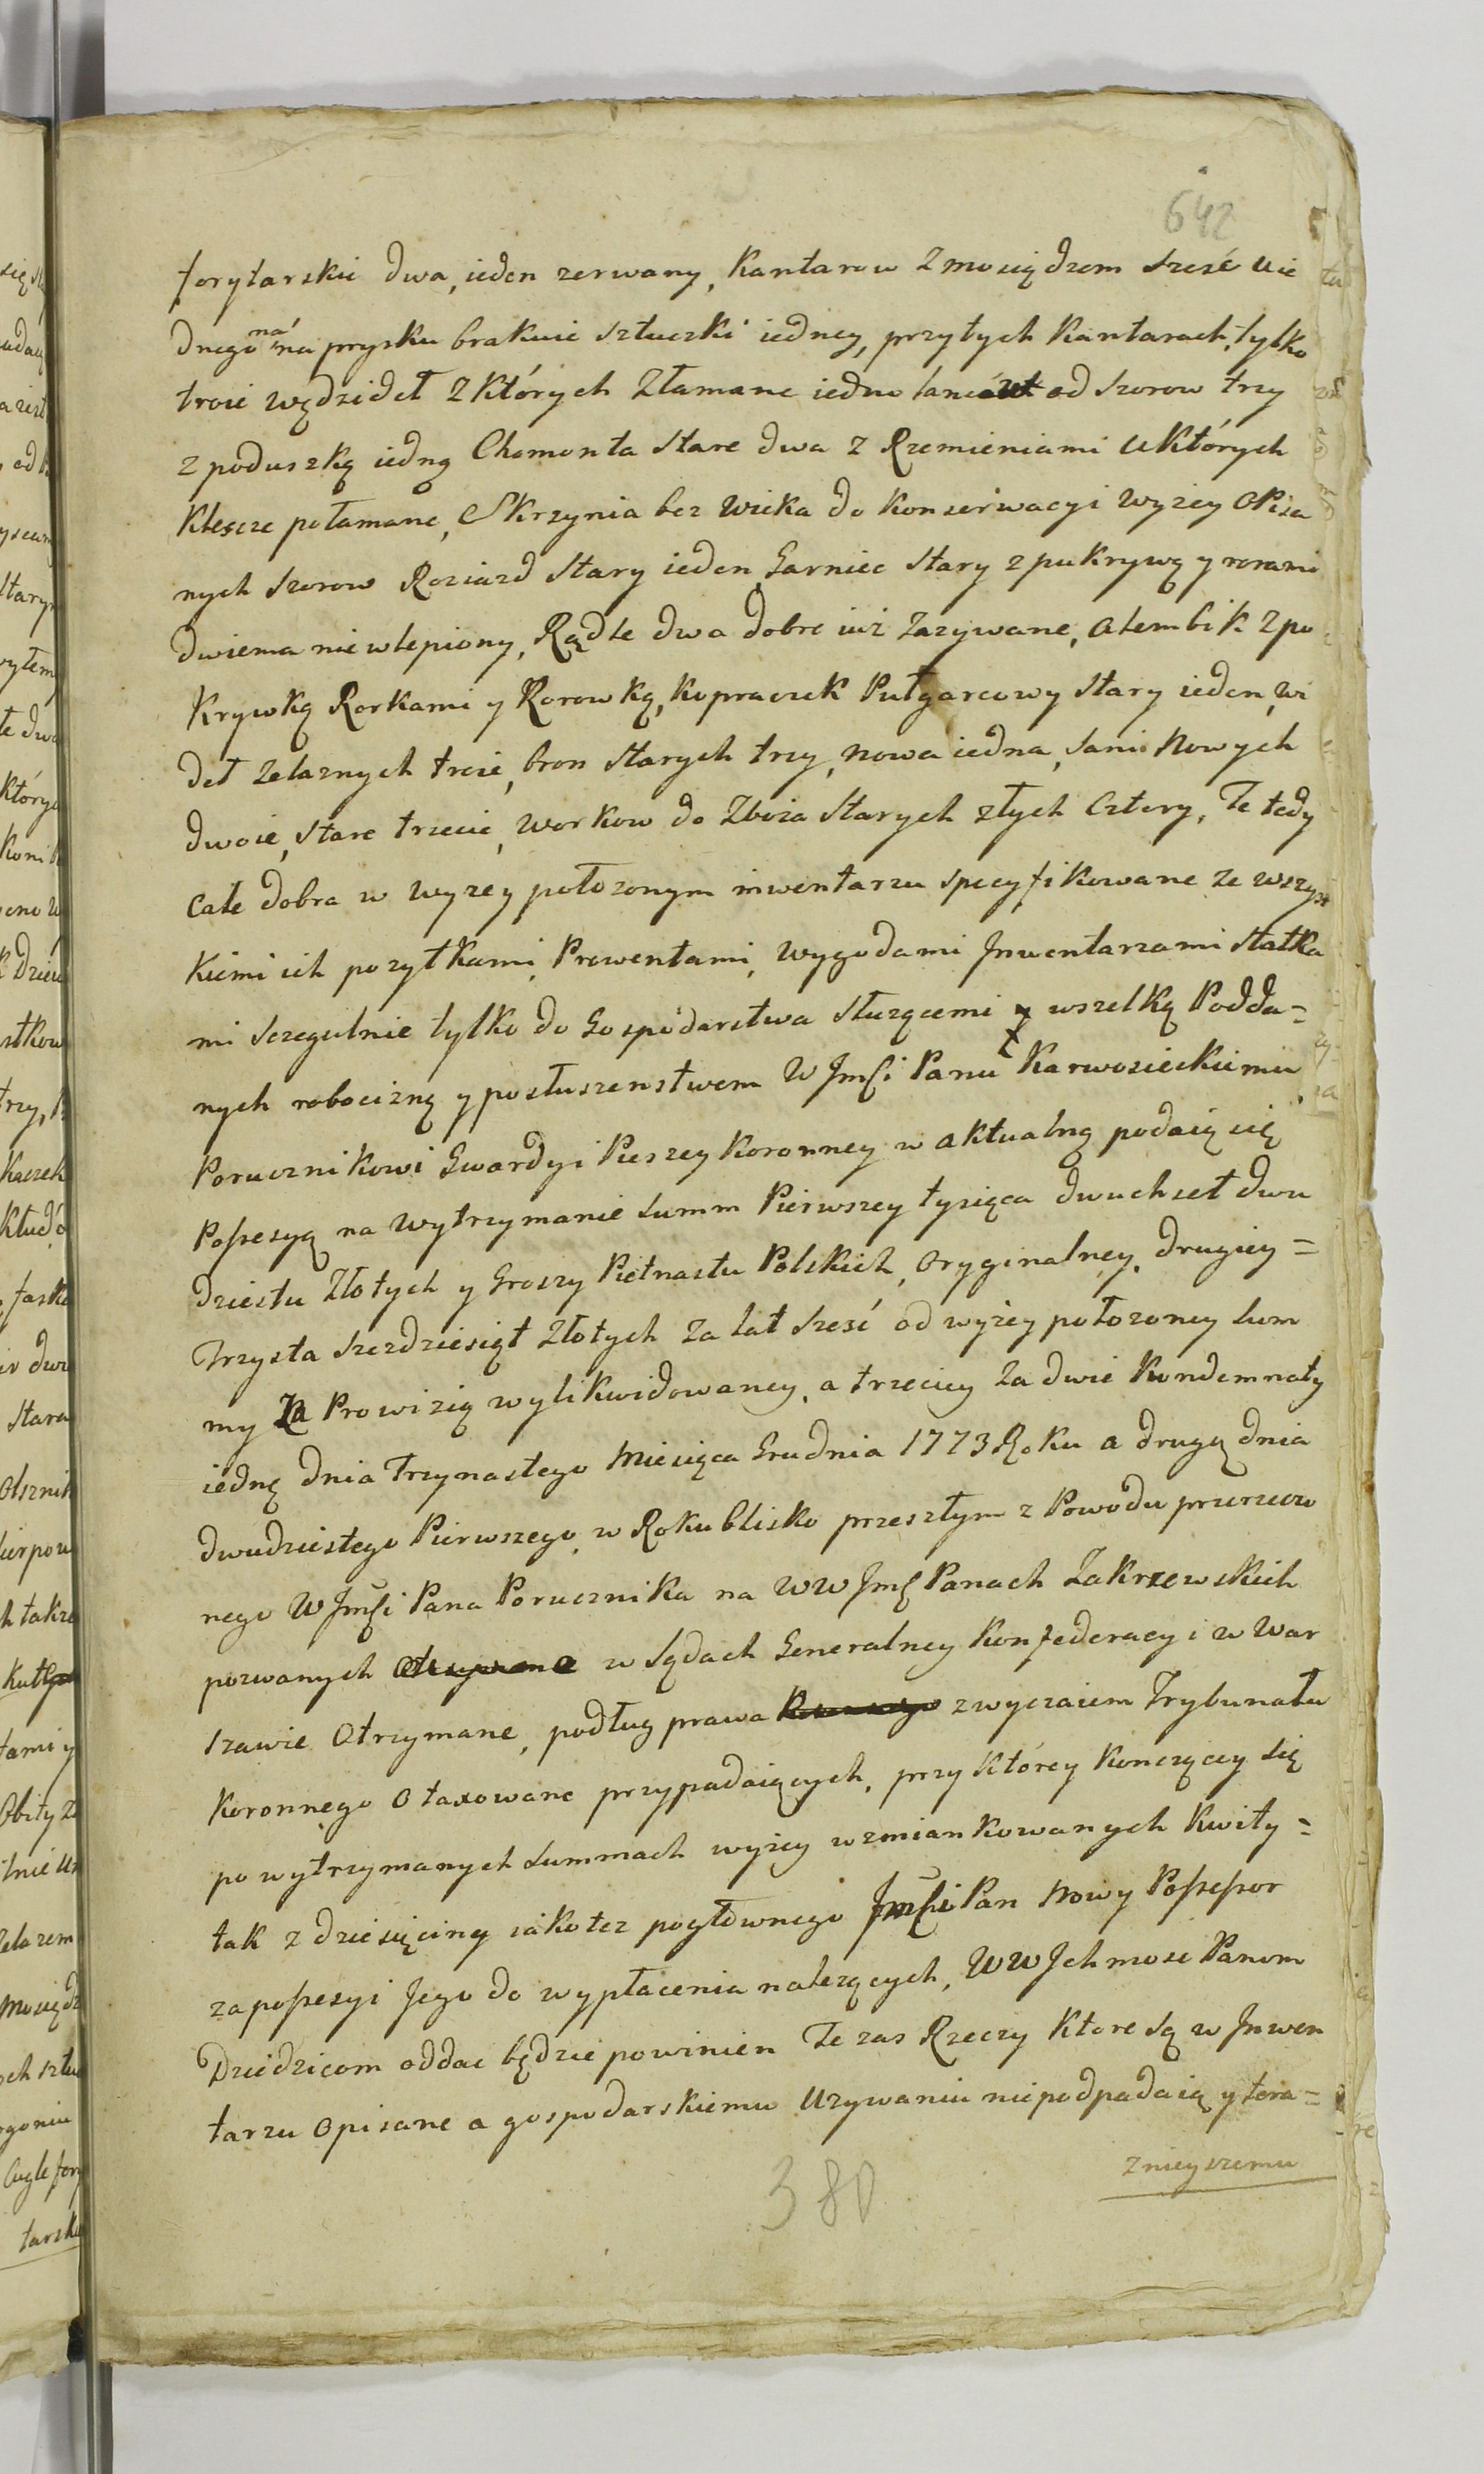 642
forytarskie dwa, ieden zerwany, Kantarow z mosiądzem sześć u ie
dnego ná na prysku brakuie sztuczki iedney, przytych Kantarach, tylko
troie wędzideł z których złamane iedno od szorow trzy
z poduszką iedną Chomonta Stare dwa z Rzemieniami u których
Kleszcze połamane, Skrzynia bez Wieka do Konserwacyi wyżey Opisa
nych szorow Roziazd Stary ieden, Garniec Stary z pukrywą y rorami
dwiema nie wlepiony, Rądle dwa dobre iuż zazywane, alembik z po
Krywką Rorkami y Rorowką, Kopraczek Pułgarcowy Stary ieden, wi
deł zelaznych troie, bron Starych trzy, nowa iedna, Sanie Nowych
dwoie, Stare trzecie, workow do Zboza Starych złych cztery, Te tedy
Całe dobra w wyzey połozonym inwentarzu specyfikowane ze wszyst
kiemi ich pozytkami, Prowentami, wygodami Jnwentarzami Statka
mi sczegulnie tylko do Gospodarstwa Służącemi y wszelką Podda=
nych robocizną y posłuszenstwem W Jmści Panu Karwosieckiemu
Porucznikowi Gwardyi Pieszey Koronney w aktualną podaią się
Possesyą na wytrzymanie Summ Pierwszey tysiąca dwuchset dwu
dziestu Złotych y Groszy Pietnastu Polskich, Oryginalney, drugiey=
Trzysta szezdziesiąt Złotych za lat sześć od wyżey położoney Sum
my Za Prowizią wylikwidowaney, a trzeciey za dwie Kondemnaty
iednę dnia Trzynastego Miesiąca Grudnia 1773 Roku a drugą dnia
dwudziestego Pierwszego, w Roku blisko przeszłym z Powodu przerzeczo
nego W Jmści Pana Porucznika na WW Jmść Panach Zakrzewskich
pozwanych w Sądach Generalney Konfederacyi w War
szawie Otrzymane, podług prawa zwyczaiem Trybunału
Koronnego Otaxowane przypadaiących, przy którey Konczącey się
po wytrzymanych Summach wyżey wzmiankowanych Kwity=
tak z dziesięciny iako tez pogłownego Jmści Pan Nowy Possessor
za possesyi Jego do wypłacenia nalezących, WW Jchmosc Panom
Dziedzicom oddac będzie powinien Te zas Rzeczy Ktore są w Jnwen
tarzu Opisane a gospodarskiemu Uzywaniu nie podpadaią y tera=
znieyszemu
380